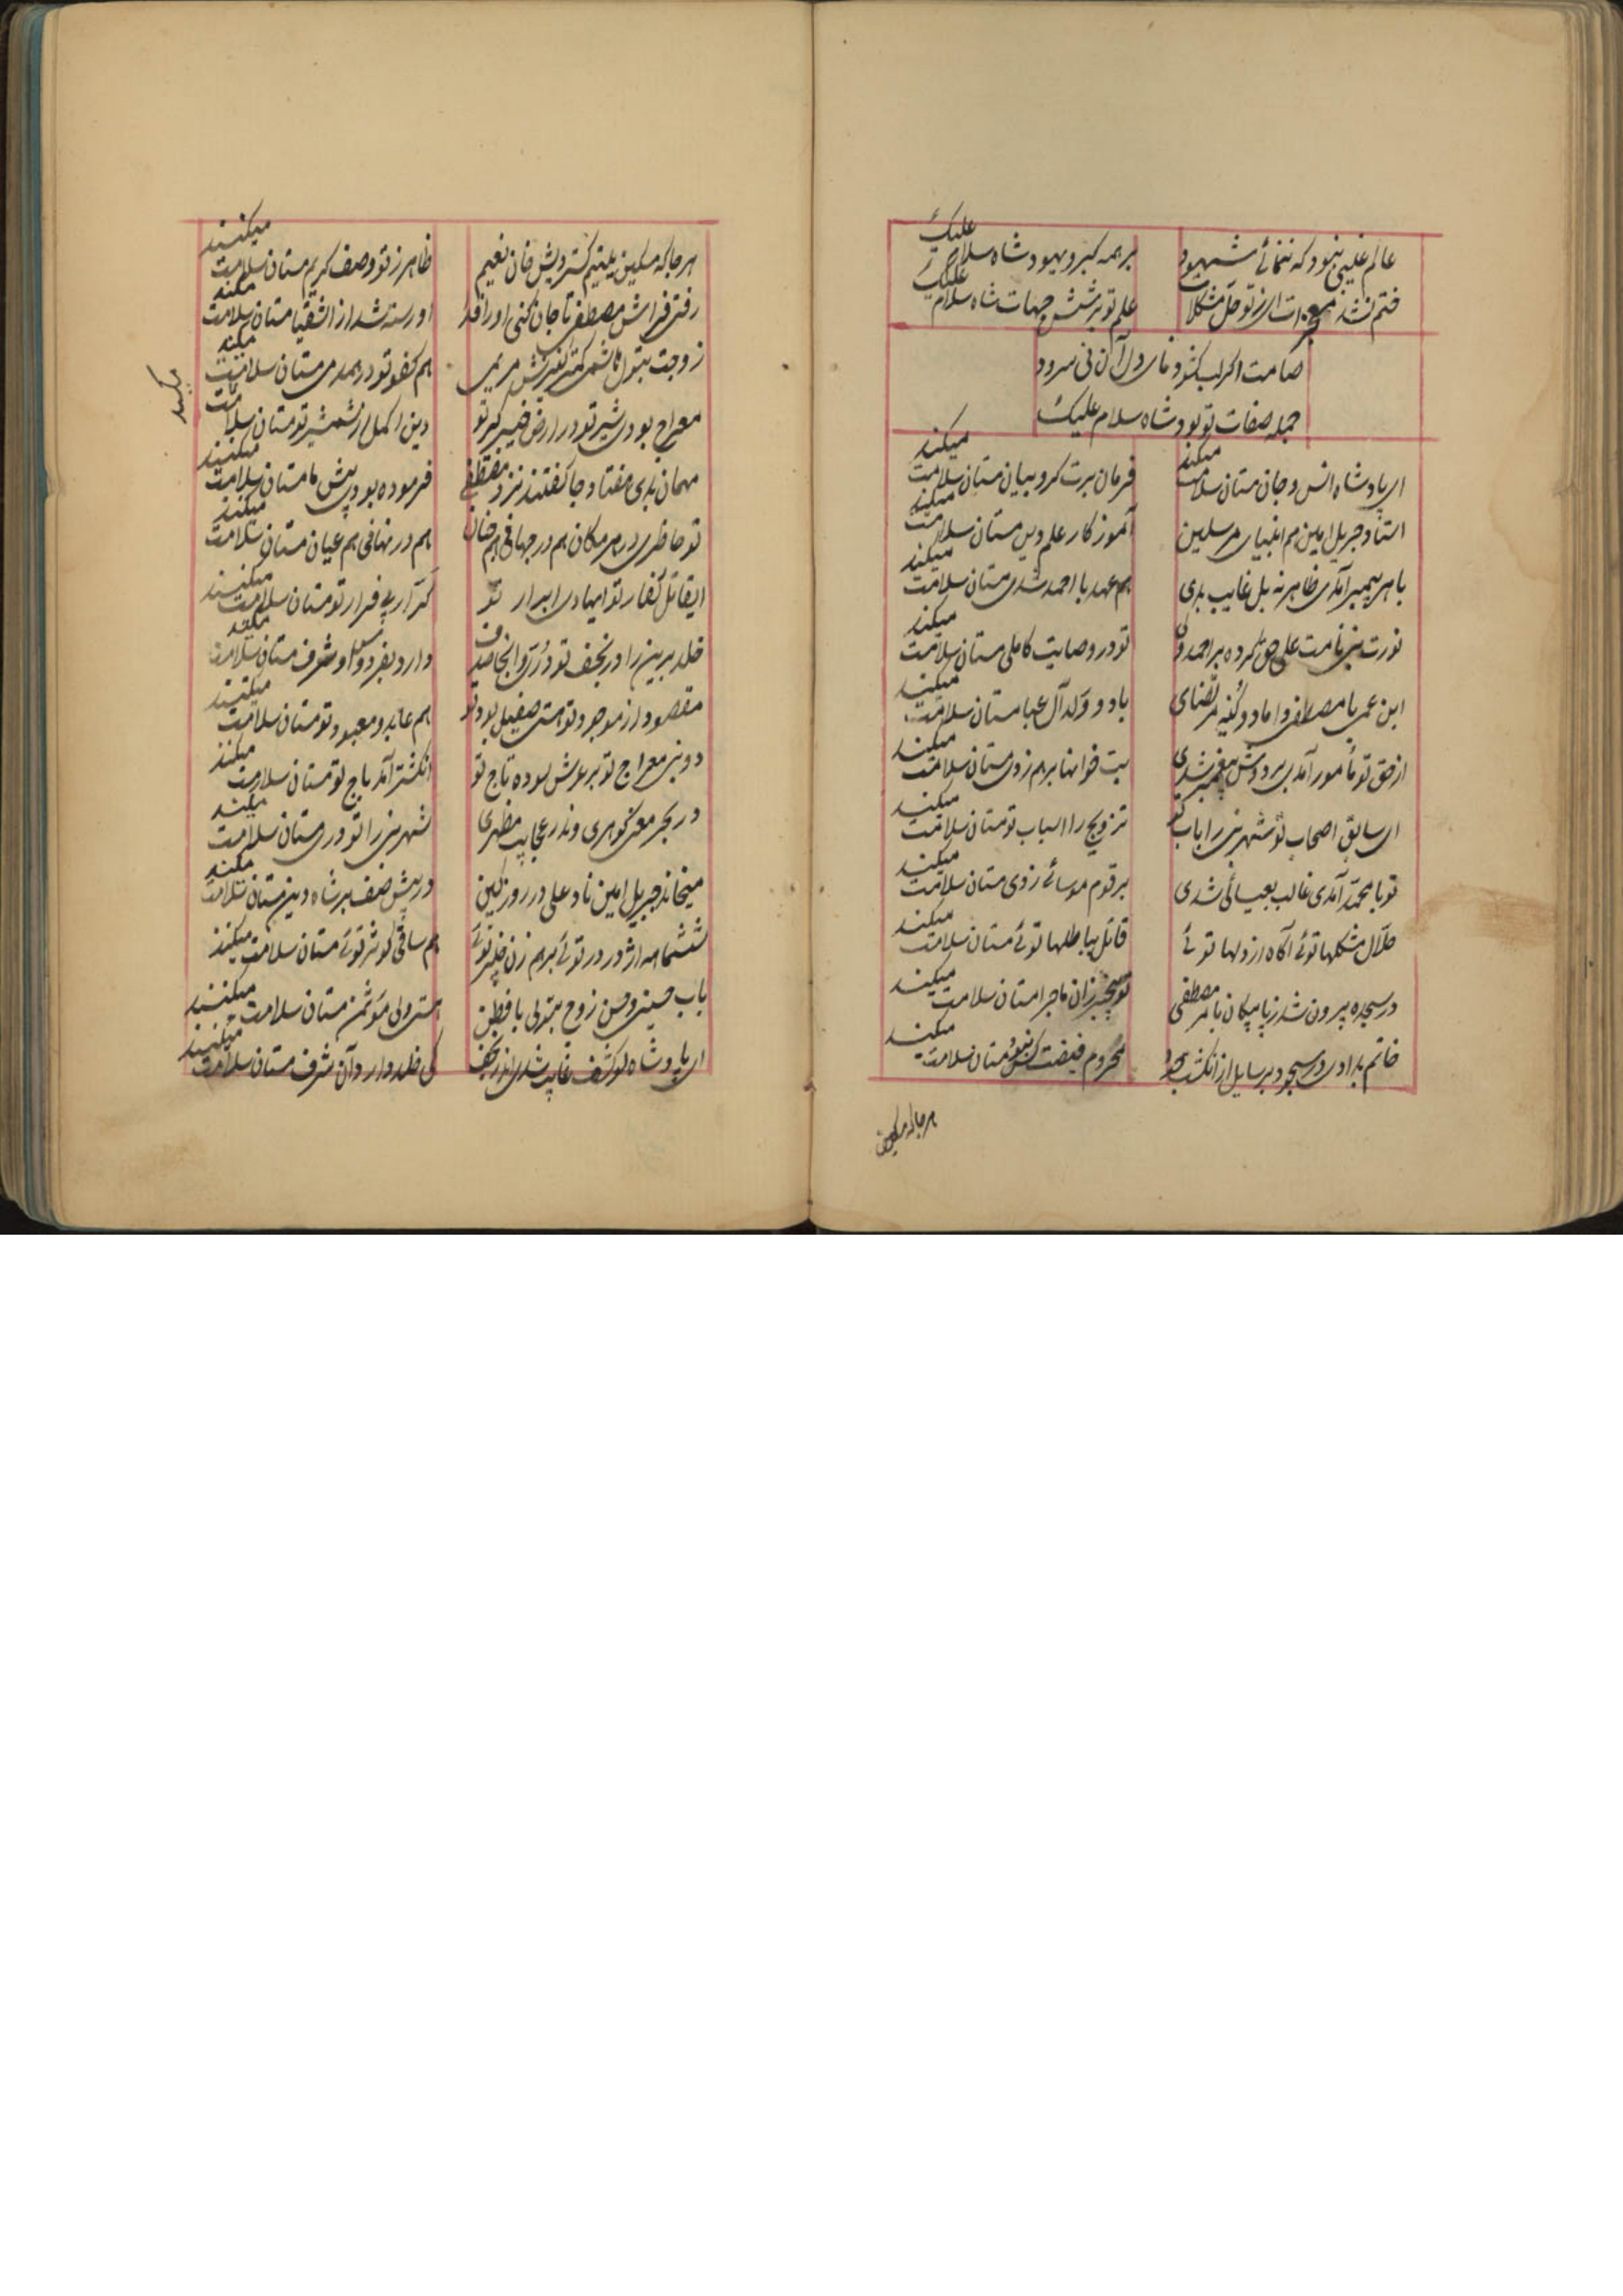 عالم غیبی نبود که ننمائے شهود
بر همه کبر و یهود شاه سلام علیک
ختم نشد معجزات ای ز تو حل مشکلات
علم تو بر شش جهات شاه سلام علیک
صامت اگر لب گشود دل آن نی سرود
جمله صفات تو بود شاه سلام علیک
ای پادشاه انس و جان مستان سلامت میکنند
فرمان برت کروبیان مستان سلامت میکنند
استاد جبریل امین هم انبیای مرسلین
آموزگار علم دین مستان سلامت میکنند
با هر پیمبر آمدی ظاهر نه بل غایب بدی
هم عهد با احمد شدی مستان سلامت میکنند
نورت نبی نامت علی حق کرده بر احمد
تو در وصایت کاملی مستان سلامت میکنند
ابن عمی با مصطفی داماد و مرتضای
باد و ولد آل عبا مستان سلامت میکنند
از حق تو مأمور آمدی بر دوش پیغمبر شدی
بت خوانها برهم زدی مستان سلامت میکنند
ای سابق اصحاب تو شهر نبی را باب تو
تزویج را اسباب تو مستان سلامت میکنند
تو با محمد آمدی غالب بعیسائی شدی
بر قوم موسائے زدی مستان سلامت میکنند
حلال مشکلها توئے آگاه از دلها توئے
قاتل بباطلها توئے مستان سلامت میکنند
در سجده بیرون شد ز پا پیکان بامر مصطفی
تو بیخبر زان ماجرا مستان سلامت میکنند
خاتم بدادی در سجود بر سایل از انگشت جود
محروم فیضت کس نبود مستان سلامت میکنند
هر جا که مسکین
هر جا که مسکین یتیم گستردیش خان نعیم
ظاهر ز تو وصف کریم مستان سلامت میکنند
رفتی فراش مصطفی تا جان کنی او را فدا
او رسته شد از اشقیا مستان سلامت میکنند
زوجت بتول هاشمی کمتر کنیزش مریمی
هم کفو تو در همدمی مستان سلامت میکنند
معراج بودی شیر تو در ارض خیبر گیر تو
دین اکمل از شمشیر تو مستان سلامت
میکنند
مهمان بدی هفتاد جا گفتند نزد مصطفی
فرموده بود پیش ما مستان سلامت میکنند
تو حاظری در هر مکان هم در جهانی هم جنان
هم در نهانی هم عیان مستان سلامت میکنند
ای قاتل کفار تو ای هادی ابرار تو
کرار بی فرار تو مستان سلامت میکنند
خلد برین را در نجف تو در و آنجا صدف
دارد بفردوس او شرف مستان سلامت میکنند
مقصود از موجود تو هستی بود تو
هم عابد و معبود تو مستان سلامت میکنند
دوش نبی معراج تو بر عرش سوده تاج تو
انگشتر آمد باج تو مستان سلامت میکنند
در بحر معنی گوهری وندر عجایب مظهری
شهر نبی را تو دری مستان سلامت میکنند
میخاند جبریل امین ناد علی در روز کین
در پیش صف بر شاه دین مستان سلامت میکنند
ششماهه اژدر در توئے برهم زن خیبر توئے
هم ساقی کوثر توئے مستان سلامت میکنند
باب حسین و حسن زوج بتولی با فطن
هستی ولی مؤتمن مستان سلامت میکنند
ای پادشاه لو کشف غایب شدی اندر نجف
کی خلد دارد آن شرف مستان سلامت میکنند